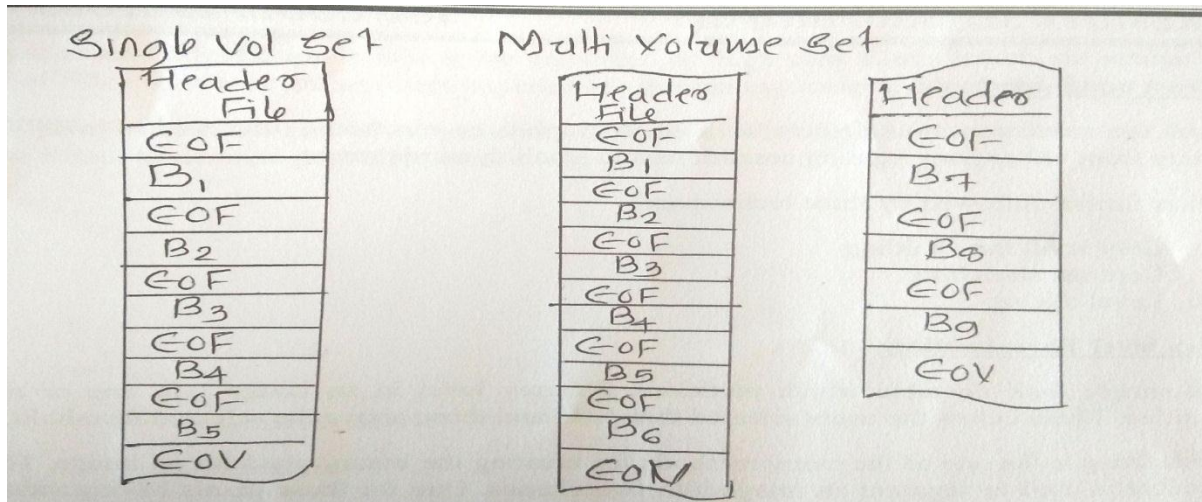 Single Vol Set
Header
File
EOF
B1
EOF
B2
EOF
B3
EOF
B4
EOF
B5
EOV
Multi Volume Set
Header
File
EOF
B1
EOF
B2
EOF
B3
EOF
B4
EOF
B5
EOF
B6
EOV
Header
EOF
B7
EOF
B8
EOF
B9
EOV